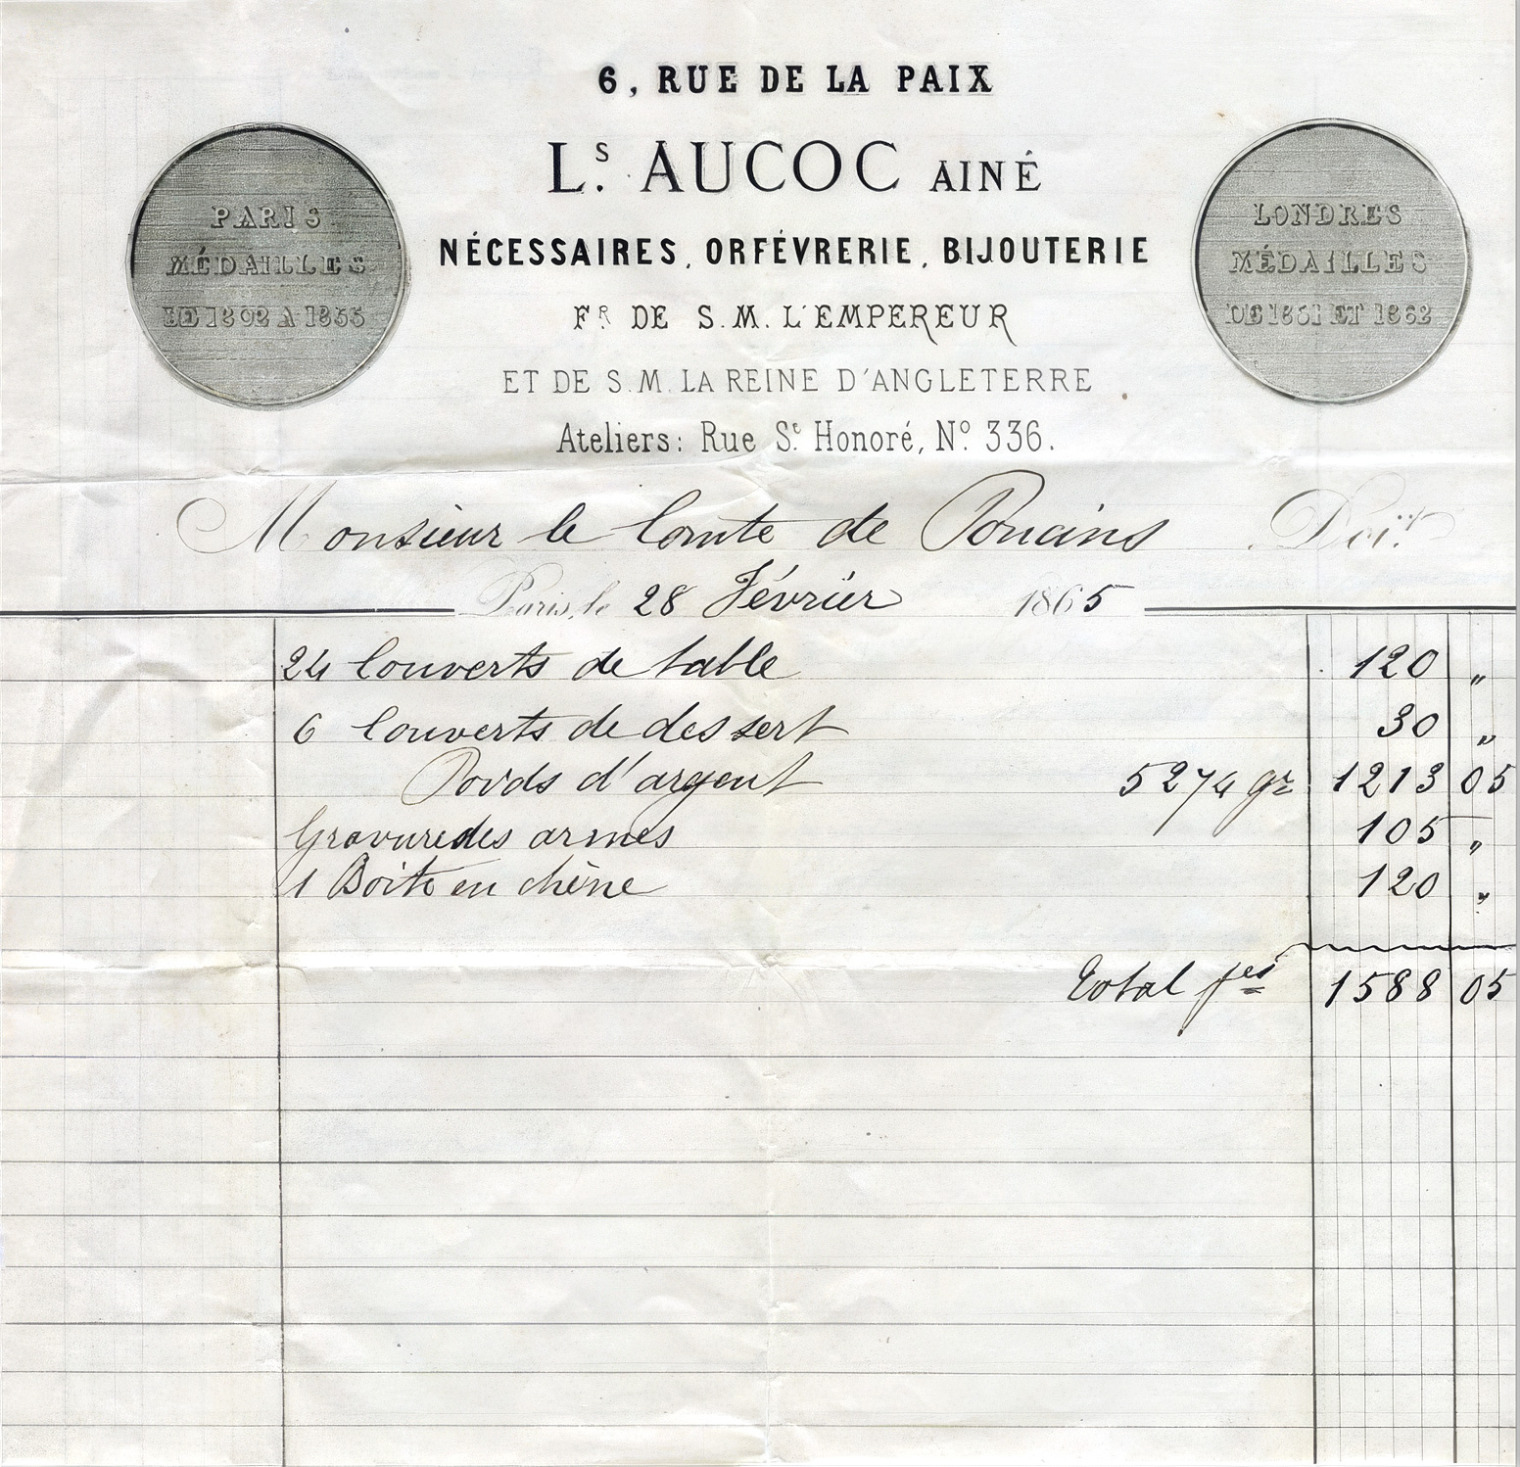 6, RUE DE LA PAIX
Ls. AUCOC AINÉ
NÉCESSAIRES, ORFÉVRERIE, BIJOUTERIE
FR DE S.M. L'EMPEREUR
ET DE S.M. LA REINE D'ANGLETERRE
Ateliers: Rue St Honoré, No 336.
PARIS
MÉDAILLES
DE 1802 A 1855
LONDRES
MÉDAILLES
DE 1851 ET 1862
Monsieur le Comte de Poncins Doit
Paris, le 28 Février 1865
24 Couverts de table 120 "
6 Couverts de dessert 30 "
Poids d'argent 5274 gr 1213 05
Gravure des armes 105 "
1 Boite en chêne 120 "
Total fcs 1588 05